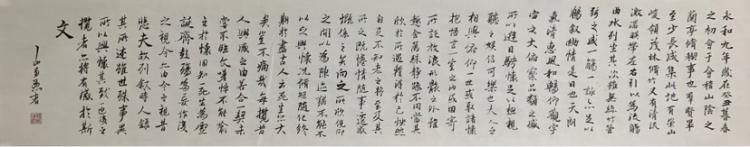 永和九年歲在癸丑暮春
之初會于會稽山陰之
蘭亭脩稧事也羣賢畢
至少長咸集此地有崇山
峻領茂林脩竹又有清流
激湍映帶左右引以為流觴
曲水列坐其次雖無絲竹管
弦之盛一觴一詠亦足以
暢叙幽情是日也天朗
氣清惠風和暢仰觀宇
宙之大俯察品類之盛
所以遊目騁懷足以極視
聽之娛信可樂也夫人之
相與俯仰一世或取諸懷
抱悟言一室之內或因寄
所託放浪形骸之外雖
趣舍萬殊靜躁不同當其
欣於所遇蹔得於己怏然
自足不知老之將至及其
所之既惓情隨事遷感
慨係之矣向之所欣俛仰
之間以為陳迹猶不能不
以之興懷況脩短隨化終
期於盡古人云死生亦大
矣豈不痛哉每攬昔
人興感之由若合一契未
嘗不臨文嗟悼不能喻
之於懷固知一死生為虛
誕齊彭殤為妄作後
之視今亦由今之視昔
悲夫故列叙時人錄
其所述雖世殊事異
所以興懷其致一也後之
攬者亦將有感於斯
文